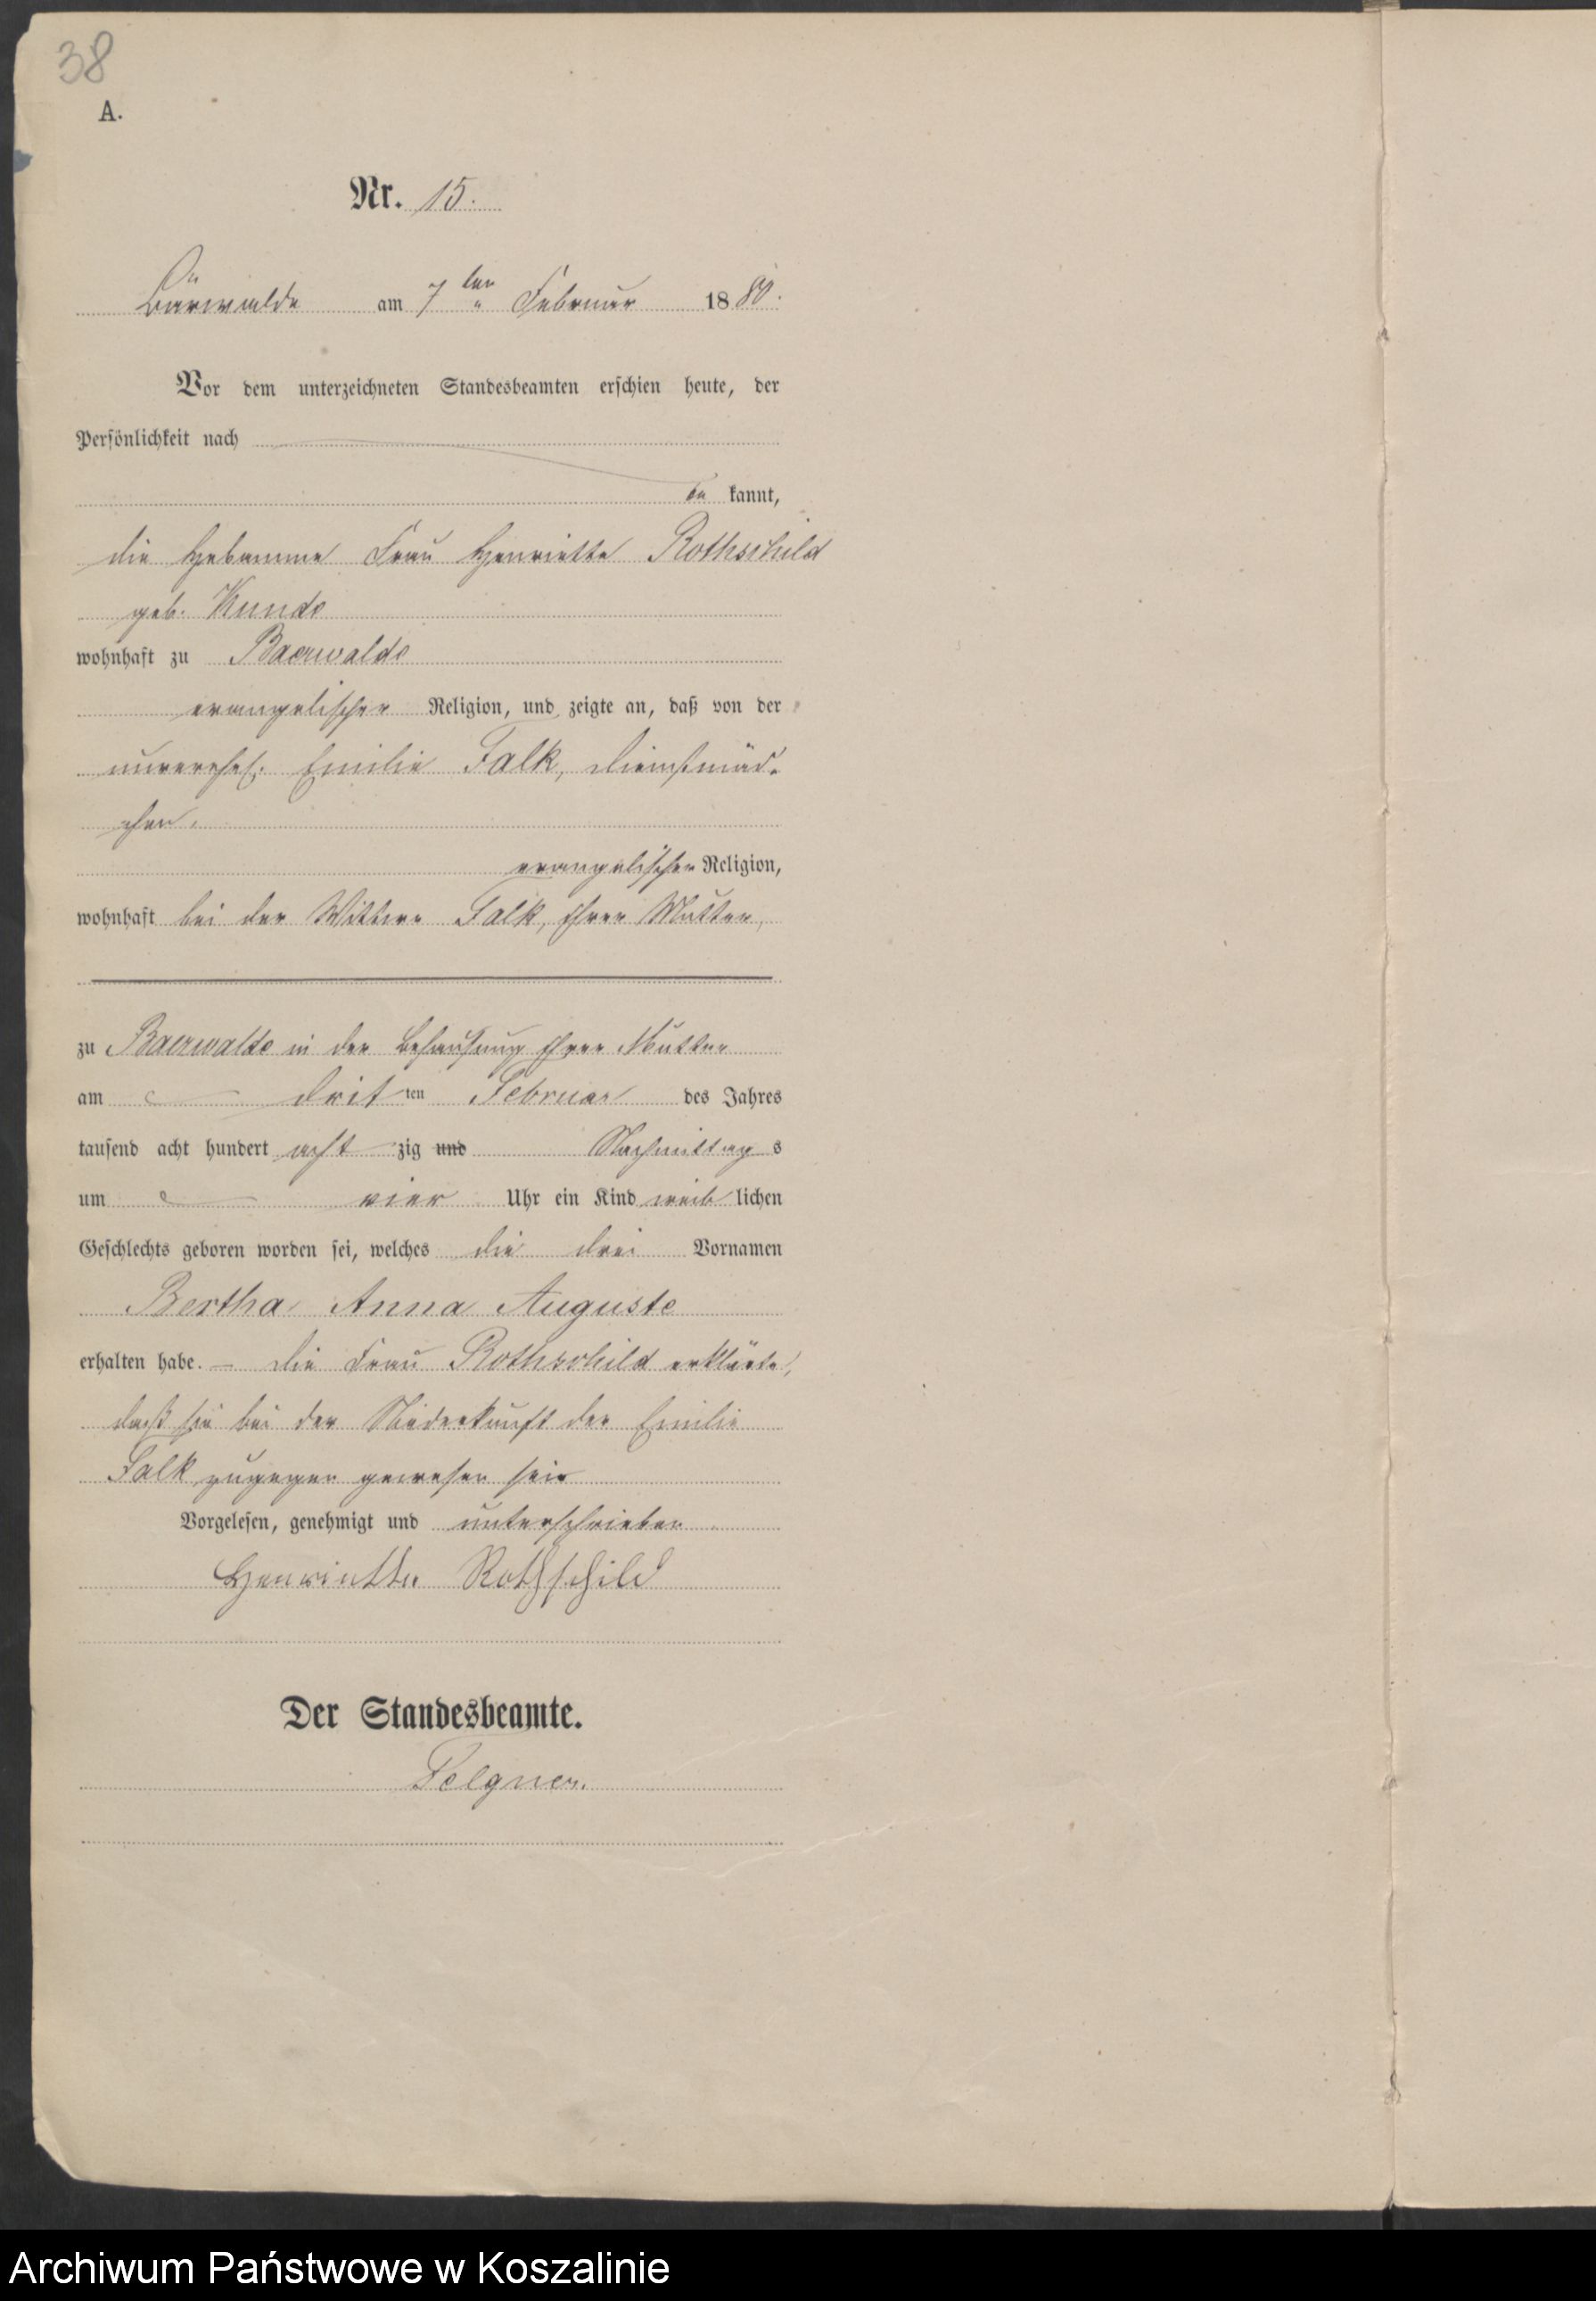 38
A.
Nr. 15.
Bärwalde am 7ten Februar 1880.
Vor dem unterzeichneten Standesbeamten erschien heute, der
Persönlichkeit nach
be kannt,
die Hebamme Frau Henriette Rothschild
geb. Kunde
wohnhaft zu Baerwalde
evangelischer Religion, und zeigte an, daß von der
unverehel. Emilie Falk, Dienstmäd-
chen,
evangelischer Religion,
wohnhaft bei der Wittwe Falk, ihrer Mutter,
zu Baerwalde in der Behausung ihrer Mutter
am dritten Februar des Jahres
tausend acht hundert acht zig und Nachmittag s
um vier Uhr ein Kind weib lichen
Geschlechts geboren worden sei, welches die drei Vornamen
Bertha Anna Auguste
erhalten habe. – Die Frau Rothschild erklärte,
daß sie bei der Niederkunft der Emilie
Falk zugegen gewesen sei.
Vorgelesen, genehmigt und unterschrieben
Henriette Rothschild
Der Standesbeamte.
Felgner.
Archiwum Państwowe w Koszalinie